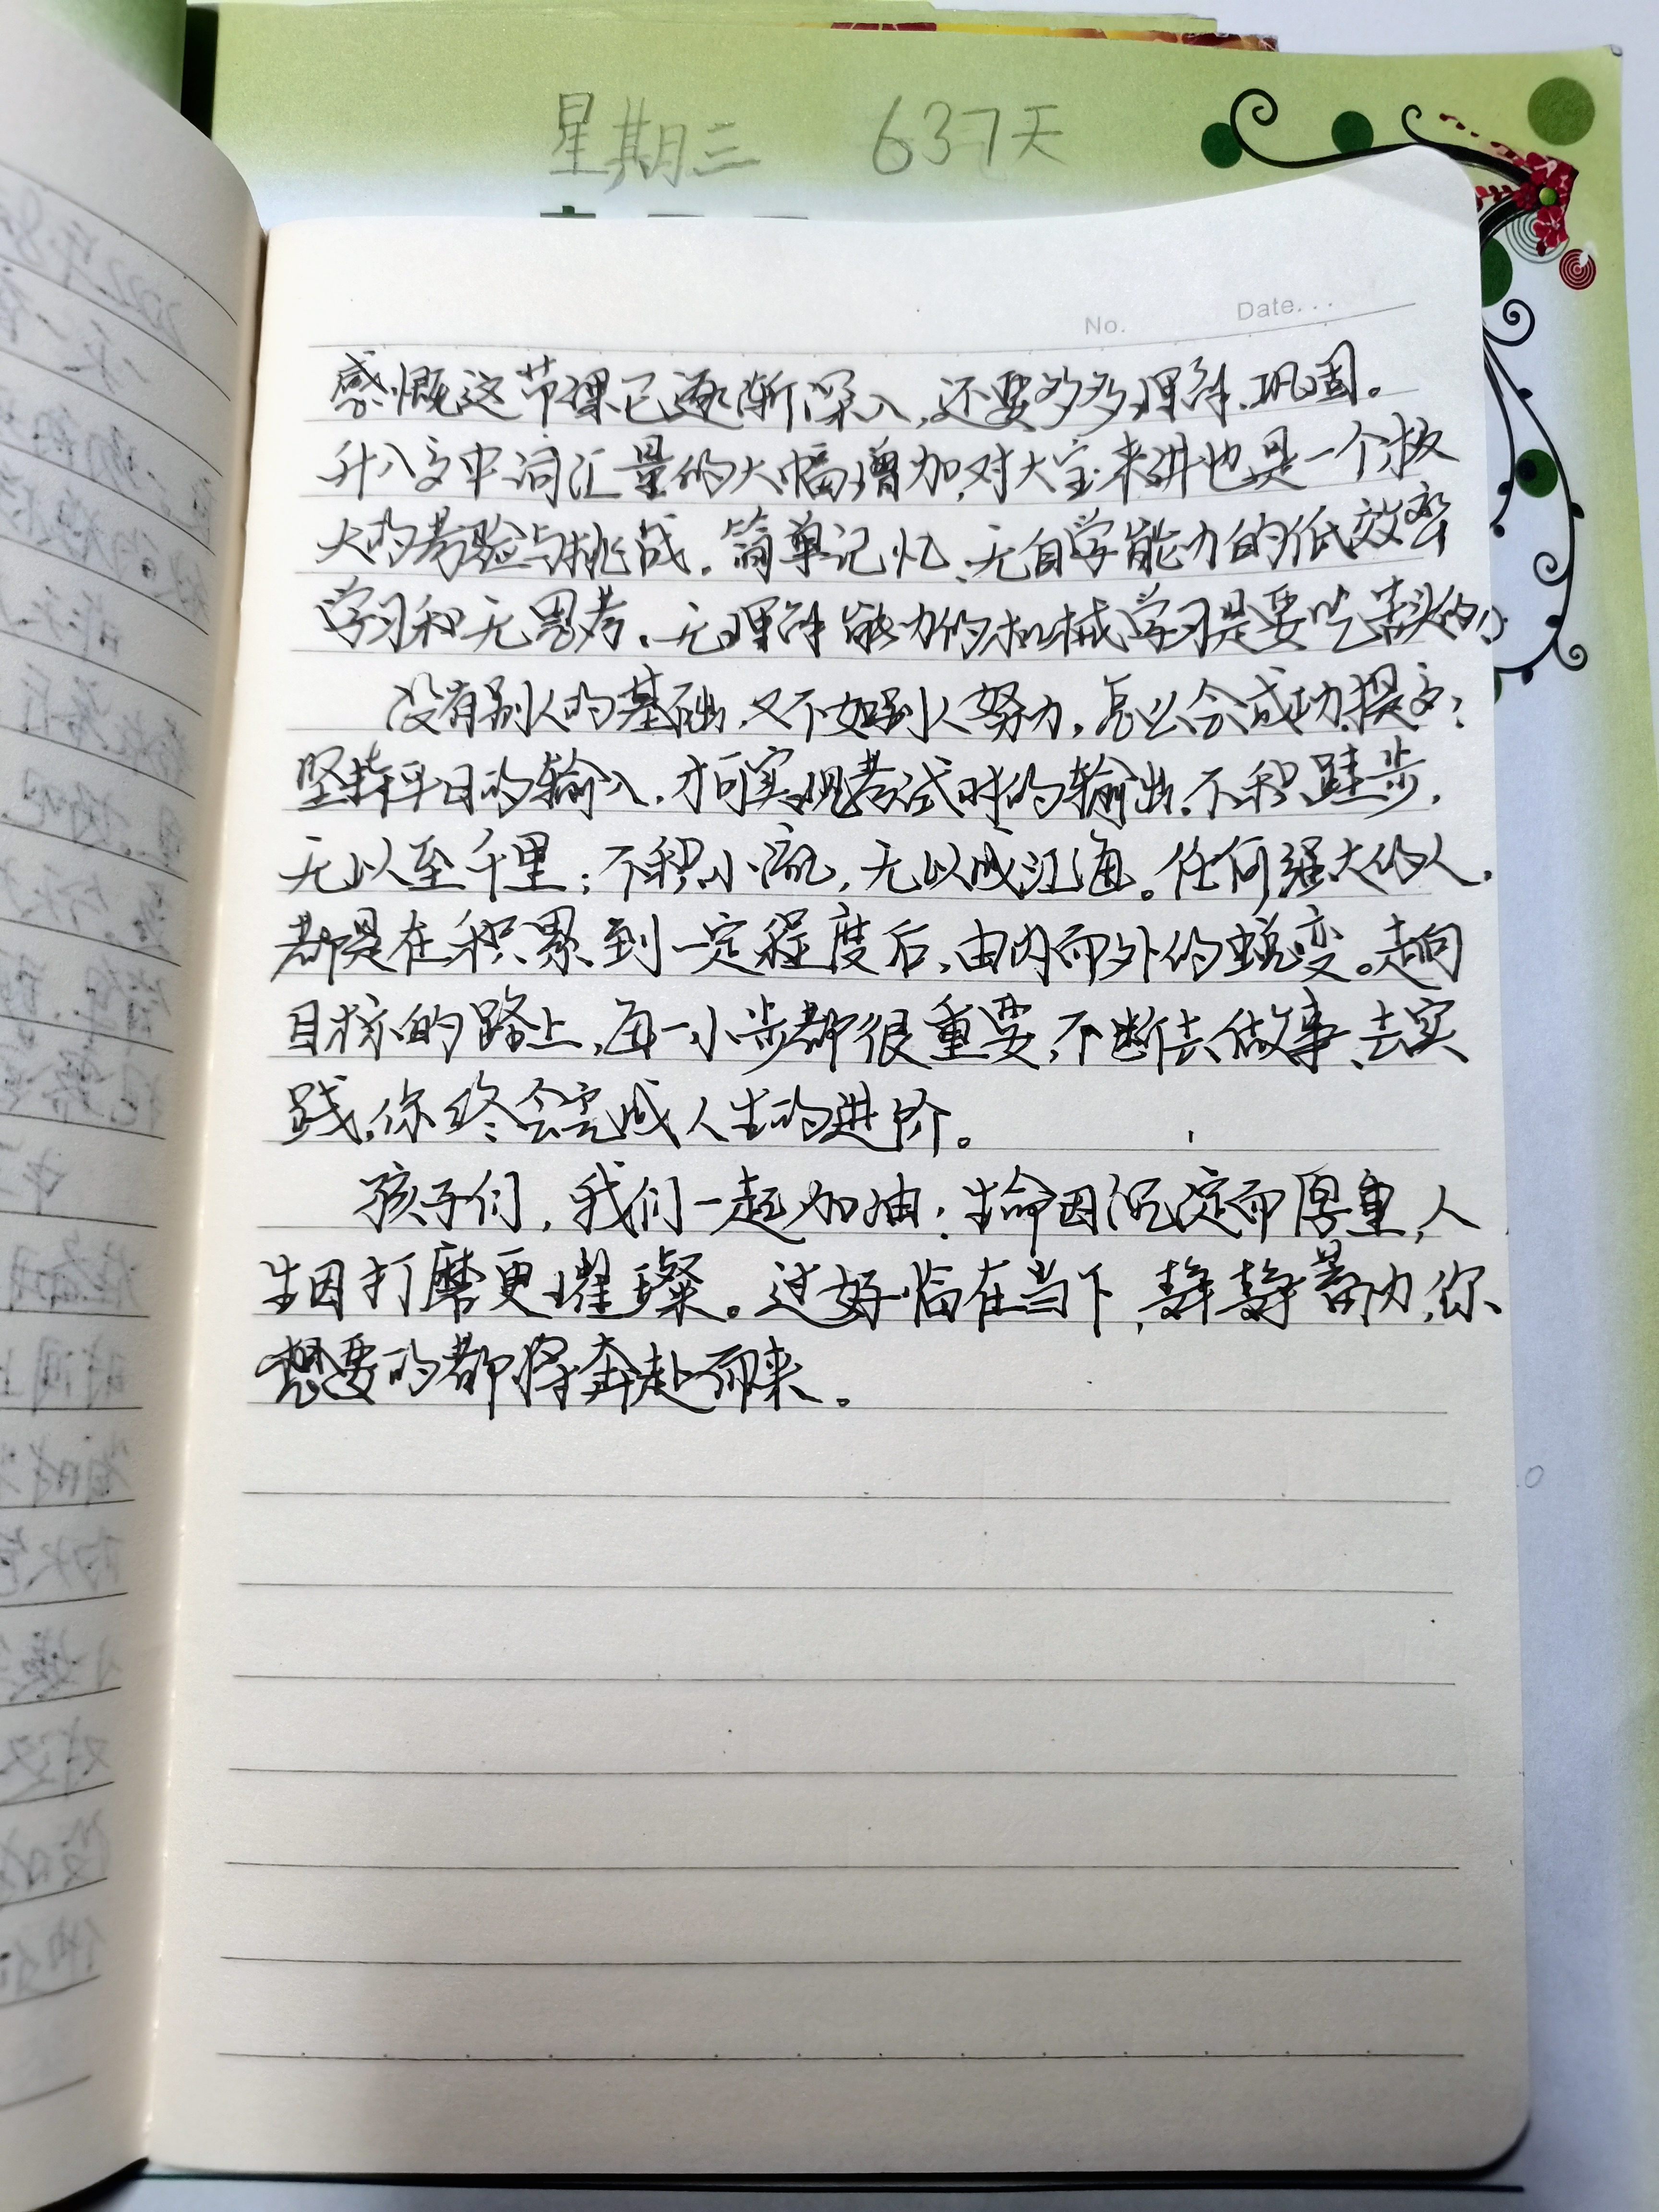 星期三 637天
No. Date...
感慨这节课已逐渐深入，还要多多理解、巩固。
升八文中词汇量的大幅增加，对大宝来讲也是一个极
大的考验与挑战。简单记忆、无自学能力的低效率
学习和无思考、无理解能力的机械学习是要吃苦头的。
没有别人的基础，又不如别人努力，怎么会成功
坚持平日的输入，才可实现考试时的输出。不积跬步，
无以至千里；不积小流，无以成江海。任何强大的人，
都是在积累到一定程度后，由内而外的蜕变。走向
目标的路上，每一小步都很重要，不断去做事、去实
践，你终会完成人生的进阶。
孩子们，我们一起加油！生命因沉淀而厚重，人
生因打磨更璀璨。过好当下，静静蓄力，你
想要的都将奔赴而来。